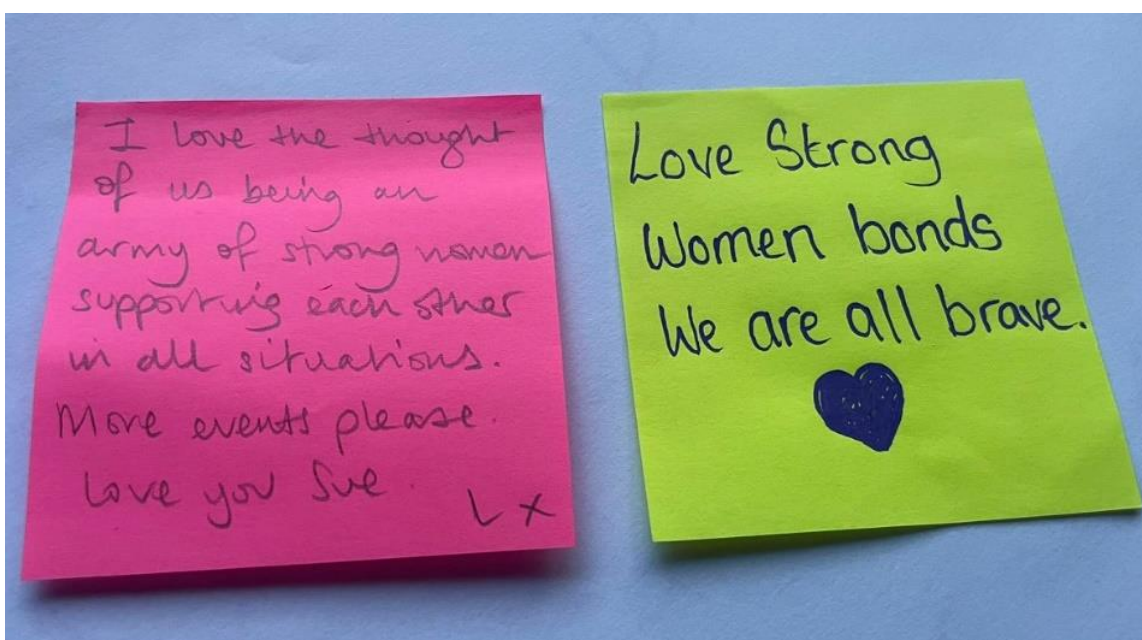 I love the thought
of us being an
army of strong women
supporting each other
in all situations.
More events please.
Love you Sue.
L x
Love Strong
Women bonds
We are all brave.